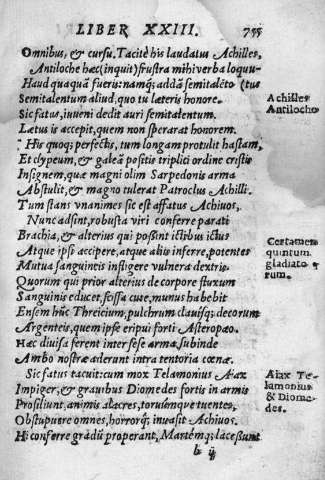 LIBER XXIII. 755
Omnibus, & cursu. Tacitè his laudatus Achilles,
Antiloche hæc (inquit) frustra mihi verba loquu-
Haud quaquã fueris: namq; addã semitalẽto (tus
Semitalentum aliud, quo tu lateris honore.
Achilles
Antilocho
Sic fatus, iuveni dedit auri semitalentum.
Lætus is accepit, quem non sperarat honorem.
His quoq; perfectis, tum longam protulit hastam,
Et clypeum, & galeã positis triplici ordine cristis
Insignem, quæ magni olim Sarpedonis arma
Abstulit, & magno tulerat Patroclus Achilli.
Tum stans vnanimes sic est affatus Achiuos.
Nunc adsint, robusta viri conferre parati
Brachia, & alterius qui possint ictibus ictus
Atque ipsi accipere, atque aliis inferre, potentes
Mutua sanguineis infligere vulnera dextris.
Certamen
quintum
gladiato
rum.
Quorum qui prior alterius de corpore fluxum
Sanguinis educet, scissa cute, munus habebit
Ensem hũc Threicium, pulchrum clauisq; decorum
Argenteis, quem ipse eripui forti Asteropæo.
Hæc diuisa ferent inter sese arma, subinde
Ambo nostræ aderunt intra tentoria cœnæ.
Sic fatus tacuit: cum mox Telamonius Aiax
Impiger, & grauibus Diomedes fortis in armis
Prosiliunt, animis alacres, toruúmque tuentes,
Aiax Te-
lamonius
& Diome-
des.
Obstupuere omnes, horrorq; inuasit Achiuos.
Hi conferre gradũ properant, Martémq; lacessunt
b ij